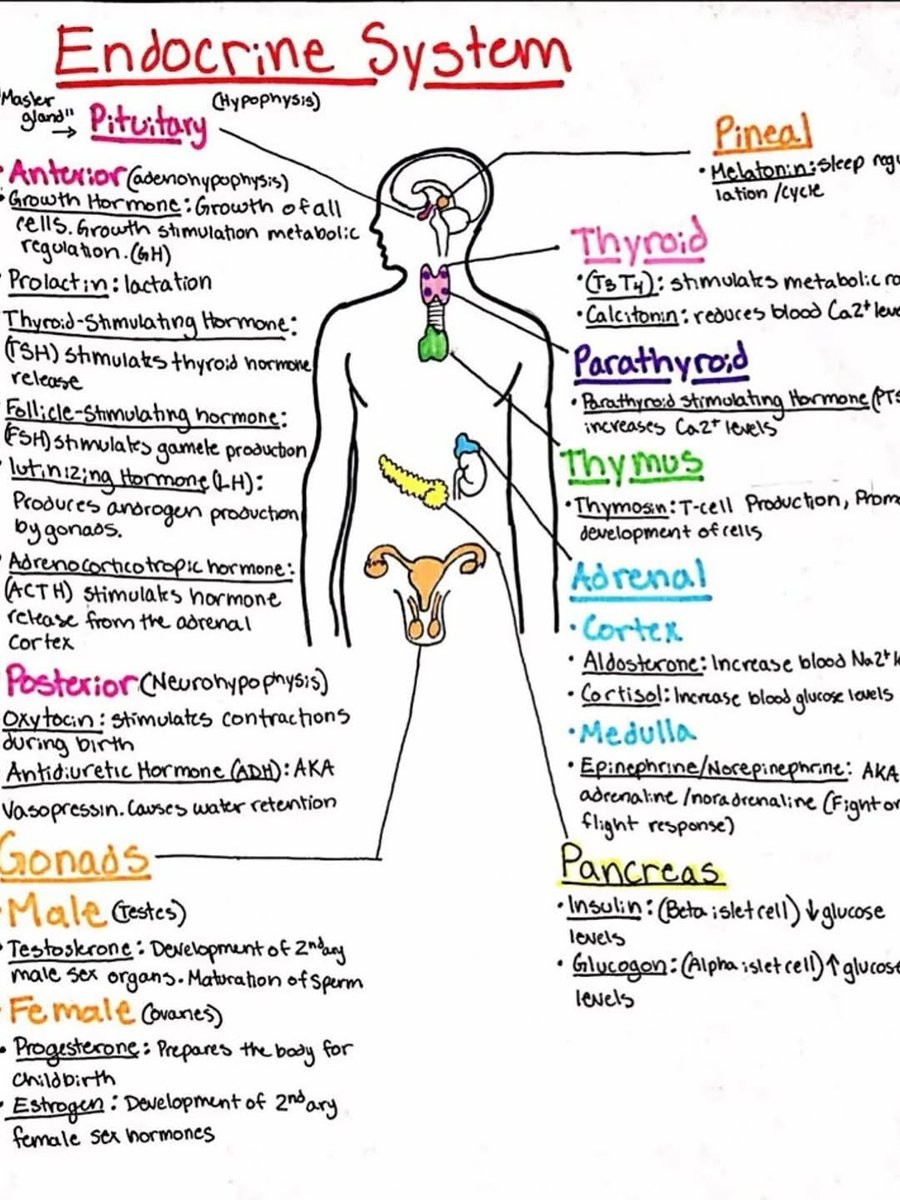 Endocrine System
"Master gland" →
Pituitary
(Hypophysis)
• Anterior (adenohypophysis)
• Growth Hormone: Growth of all
cells. Growth stimulation metabolic
regulation. (GH)
• Prolactin: lactation
Thyroid-Stimulating Hormone:
(TSH) stimulates thyroid hormone
release
Follicle-stimulating hormone:
(FSH) stimulates gamete production
lutinizing Hormone (LH):
Produces androgen production
by gonads.
Adrenocorticotropic hormone:
(ACTH) stimulates hormone
release from the adrenal
Cortex
Posterior (Neurohypophysis)
Oxytocin: stimulates contractions
during birth
Antidiuretic Hormone (ADH): AKA
Vasopressin. Causes water retention
Gonads
• Male (Testes)
• Testosterone: Development of 2ndary
male sex organs. Maturation of sperm
• Female (ovaries)
• Progesterone: Prepares the body for
Childbirth
• Estrogen: Development of 2ndary
female sex hormones
Pineal
• Melatonin: Sleep regu
lation /cycle
Thyroid
• (T3 T4): stimulates metabolic ra
• Calcitonin: reduces blood Ca2+ leve
Parathyroid
• Parathyroid stimulating Hormone (PTS
increases Ca2+ levels
Thymus
• Thymosin: T-cell Production, Promo
development of cells
Adrenal
• Cortex
• Aldosterone: Increase blood Na2+ l
• Cortisol: Increase blood glucose levels
• Medulla
• Epinephrine/Norepinephrine: AKA
adrenaline /noradrenaline (Fight or
flight response)
Pancreas
• Insulin: (Beta islet cell) ↓ glucose
levels
• Glucogon: (Alpha islet cell) ↑ glucose
levels